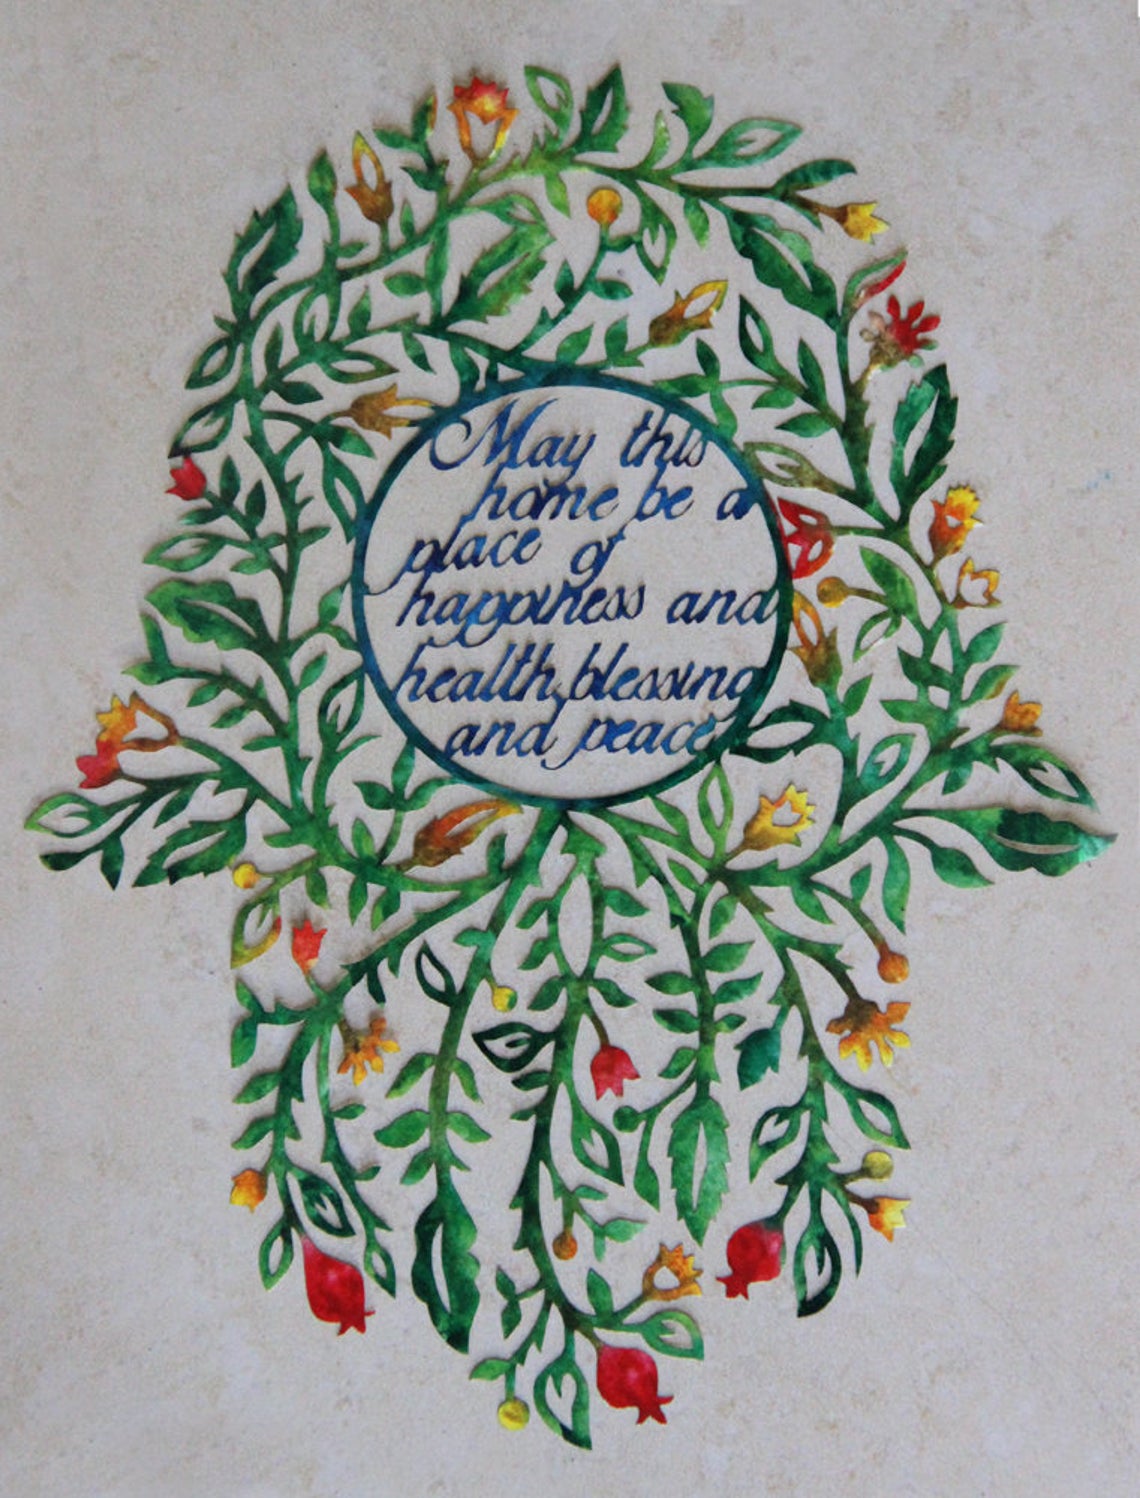 May this
home be a
place of
happiness and
health, blessing
and peace